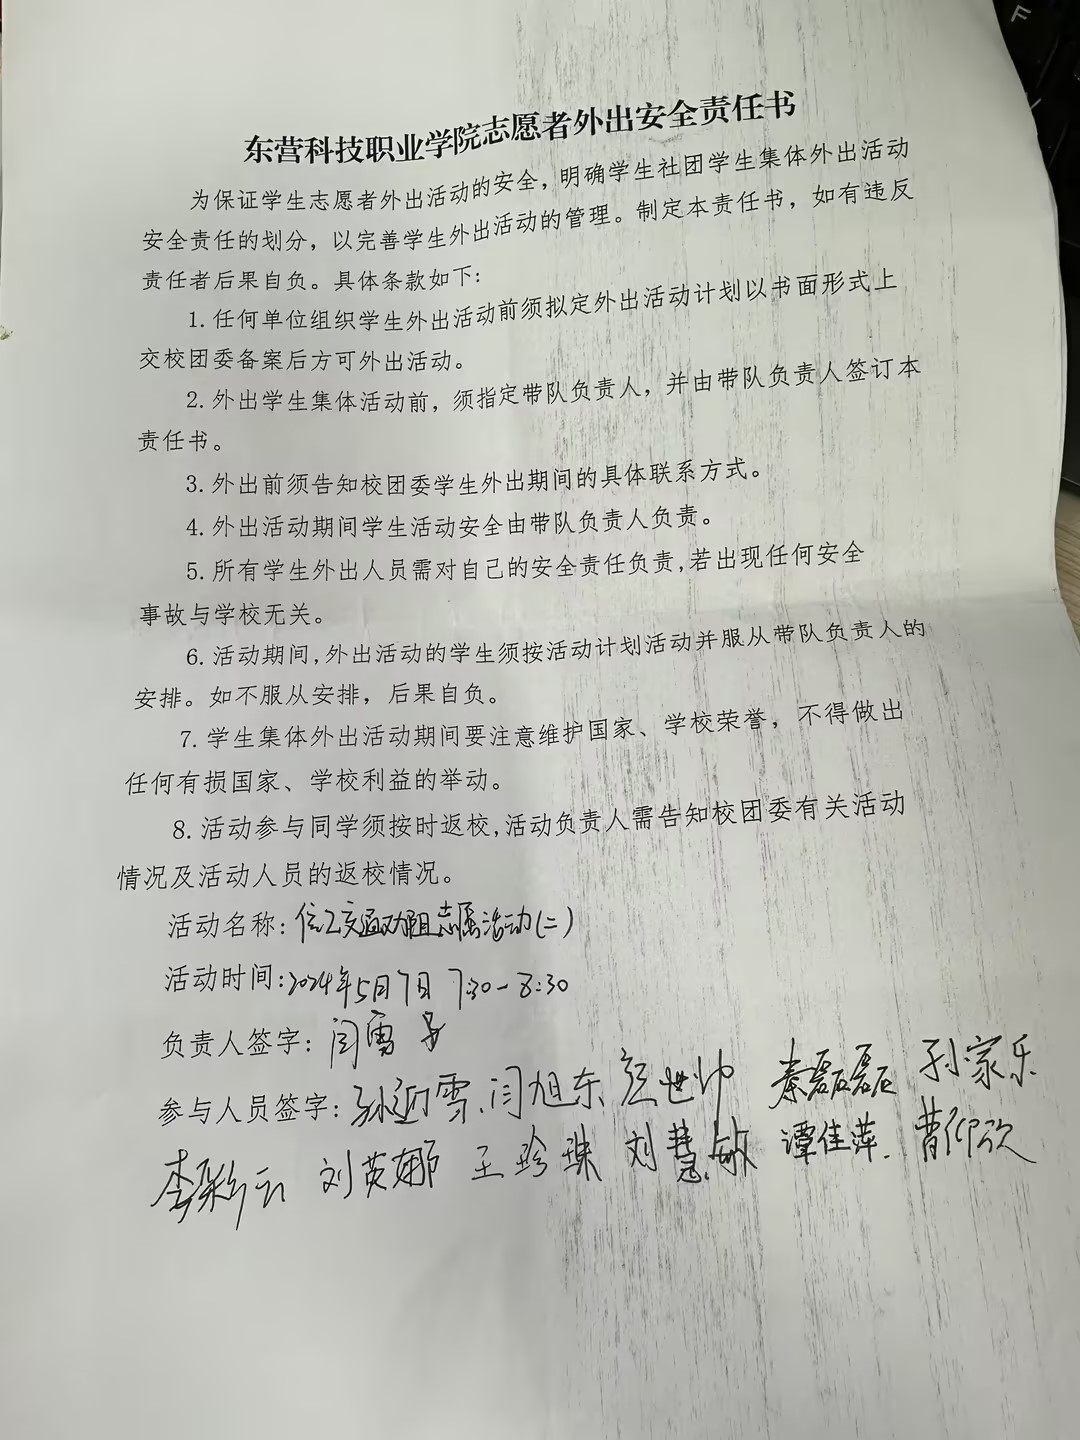 东营科技职业学院志愿者外出安全责任书
为保证学生志愿者外出活动的安全，明确学生社团学生集体外出活动
安全责任的划分，以完善学生外出活动的管理。制定本责任书，如有违反
责任者后果自负。具体条款如下：
1.任何单位组织学生外出活动前须拟定外出活动计划以书面形式上
交校团委备案后方可外出活动。
2.外出学生集体活动前，须指定带队负责人，并由带队负责人签订本
责任书。
3.外出前须告知校团委学生外出期间的具体联系方式。
4.外出活动期间学生活动安全由带队负责人负责。
5.所有学生外出人员需对自己的安全责任负责,若出现任何安全
事故与学校无关。
6.活动期间,外出活动的学生须按活动计划活动并服从带队负责人的
安排。如不服从安排，后果自负。
7.学生集体外出活动期间要注意维护国家、学校荣誉，不得做出
任何有损国家、学校利益的举动。
8.活动参与同学须按时返校,活动负责人需告知校团委有关活动
情况及活动人员的返校情况。
活动名称:信工交通劝阻志愿活动(二)
活动时间:2024年5月7日 7:30-8:30
负责人签字: 闫雪
参与人员签字: 闫旭东 秦磊磊 孙家乐
李彩云 刘英娜 王珍珠 刘慧敏 谭佳萍. 曹仰欣